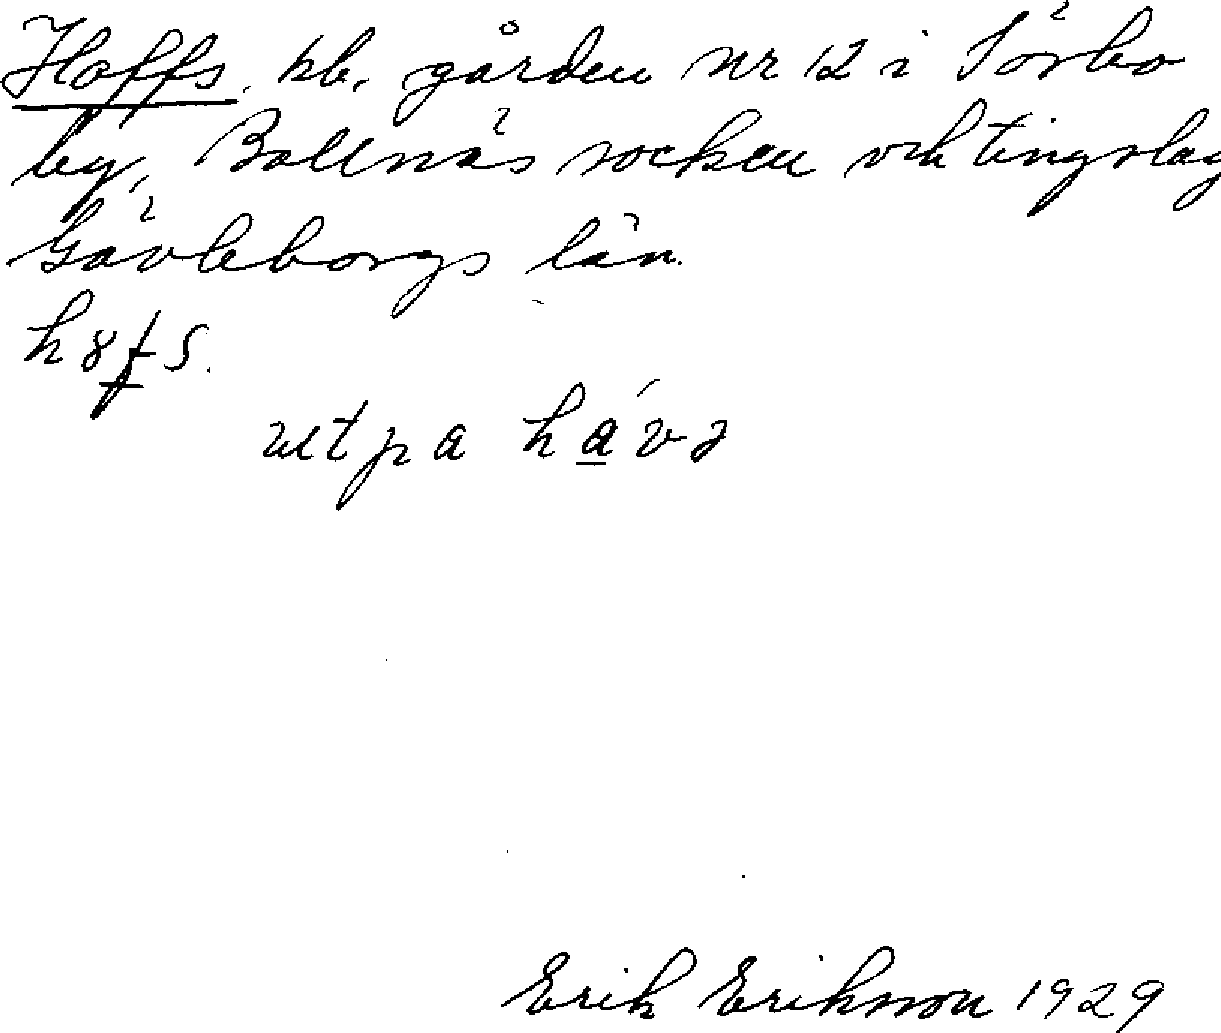 Hoffs. kb. gården nr 12 i Sörbo
by, Bollnäs socken och tingslag
Gävleborgs län.
h8fs.
utpa hávə
Erik Eriksson 1929